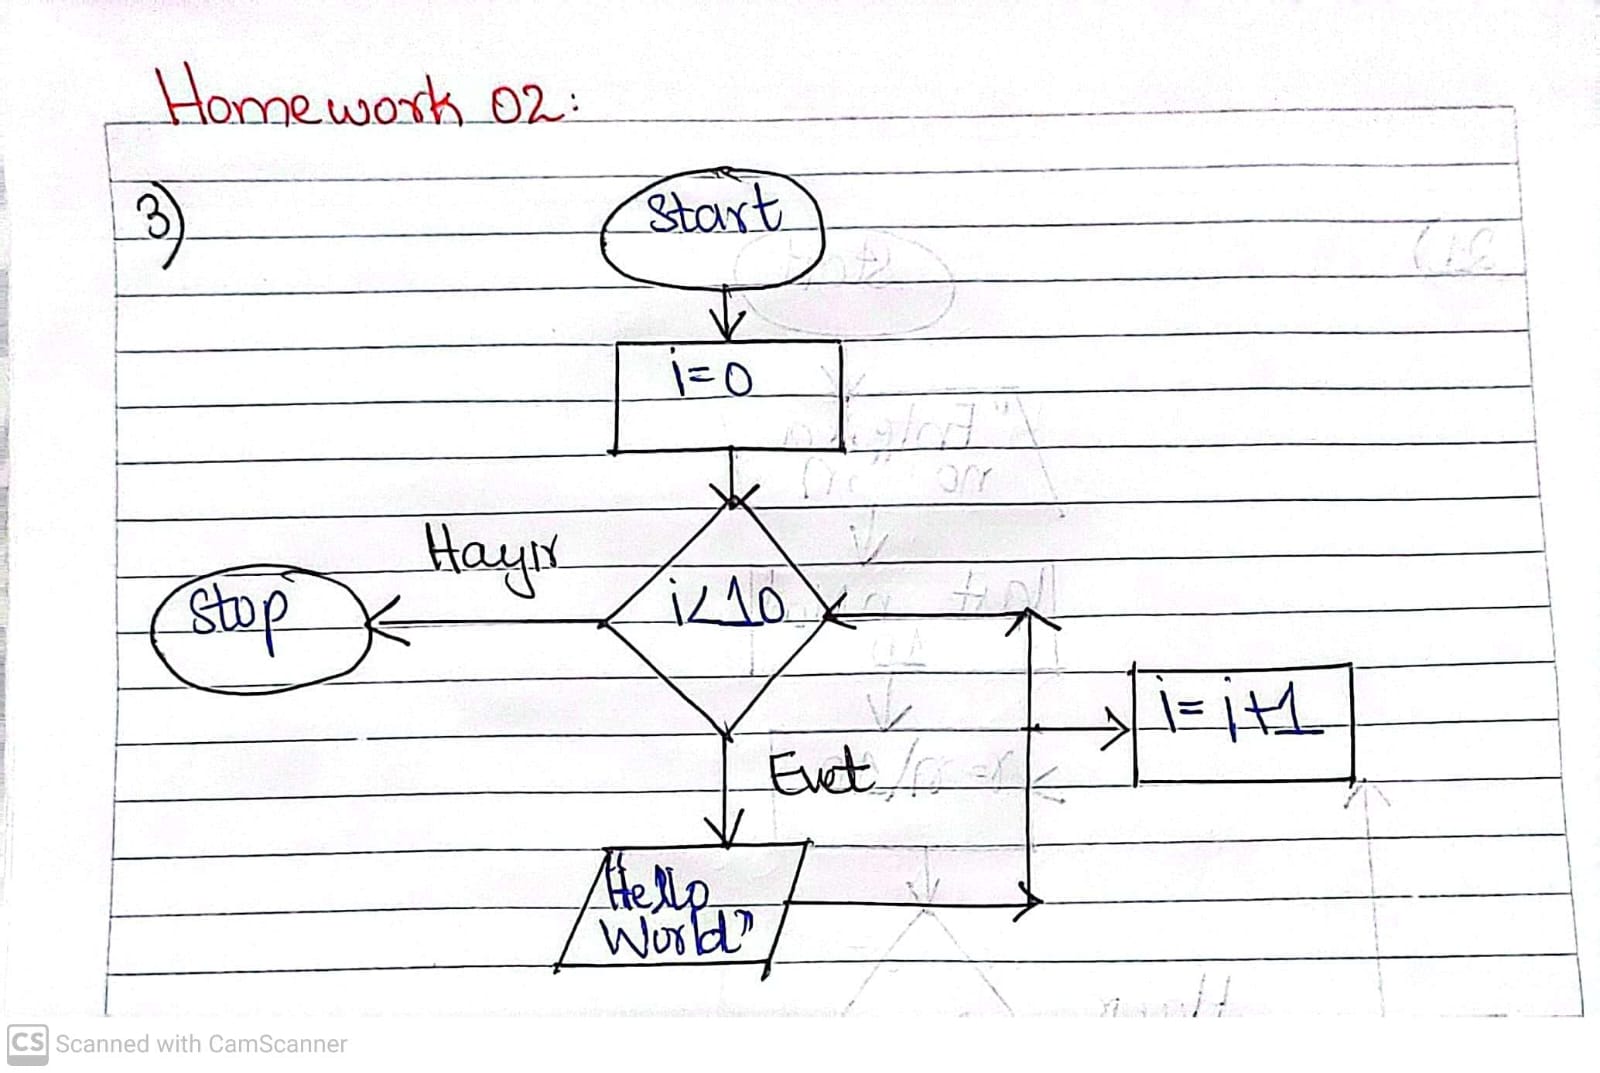 Homework 02:
3)
Start
i=0
Hayır
Stop
i<10
i=i+1
Evet
"Hello
World"
CS Scanned with CamScanner